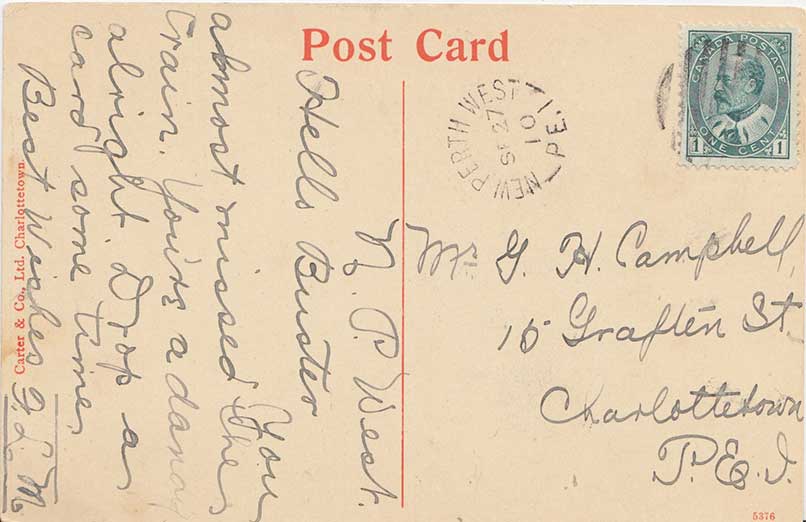 Post Card
N. P. West.
Hello Buster
You
almost missed the
train. Yours a dandy
alright. Drop a
card some time,
Best Wishes G. L. M.
Carter & Co., Ltd. Charlottetown.
NEW PERTH WEST P.E.I.
SP 27
10
CANADA POSTAGE
ONE CENT
1 1
Mr G. H. Campbell,
15 Graften St.
Charlottetown
P.E.I.
5376